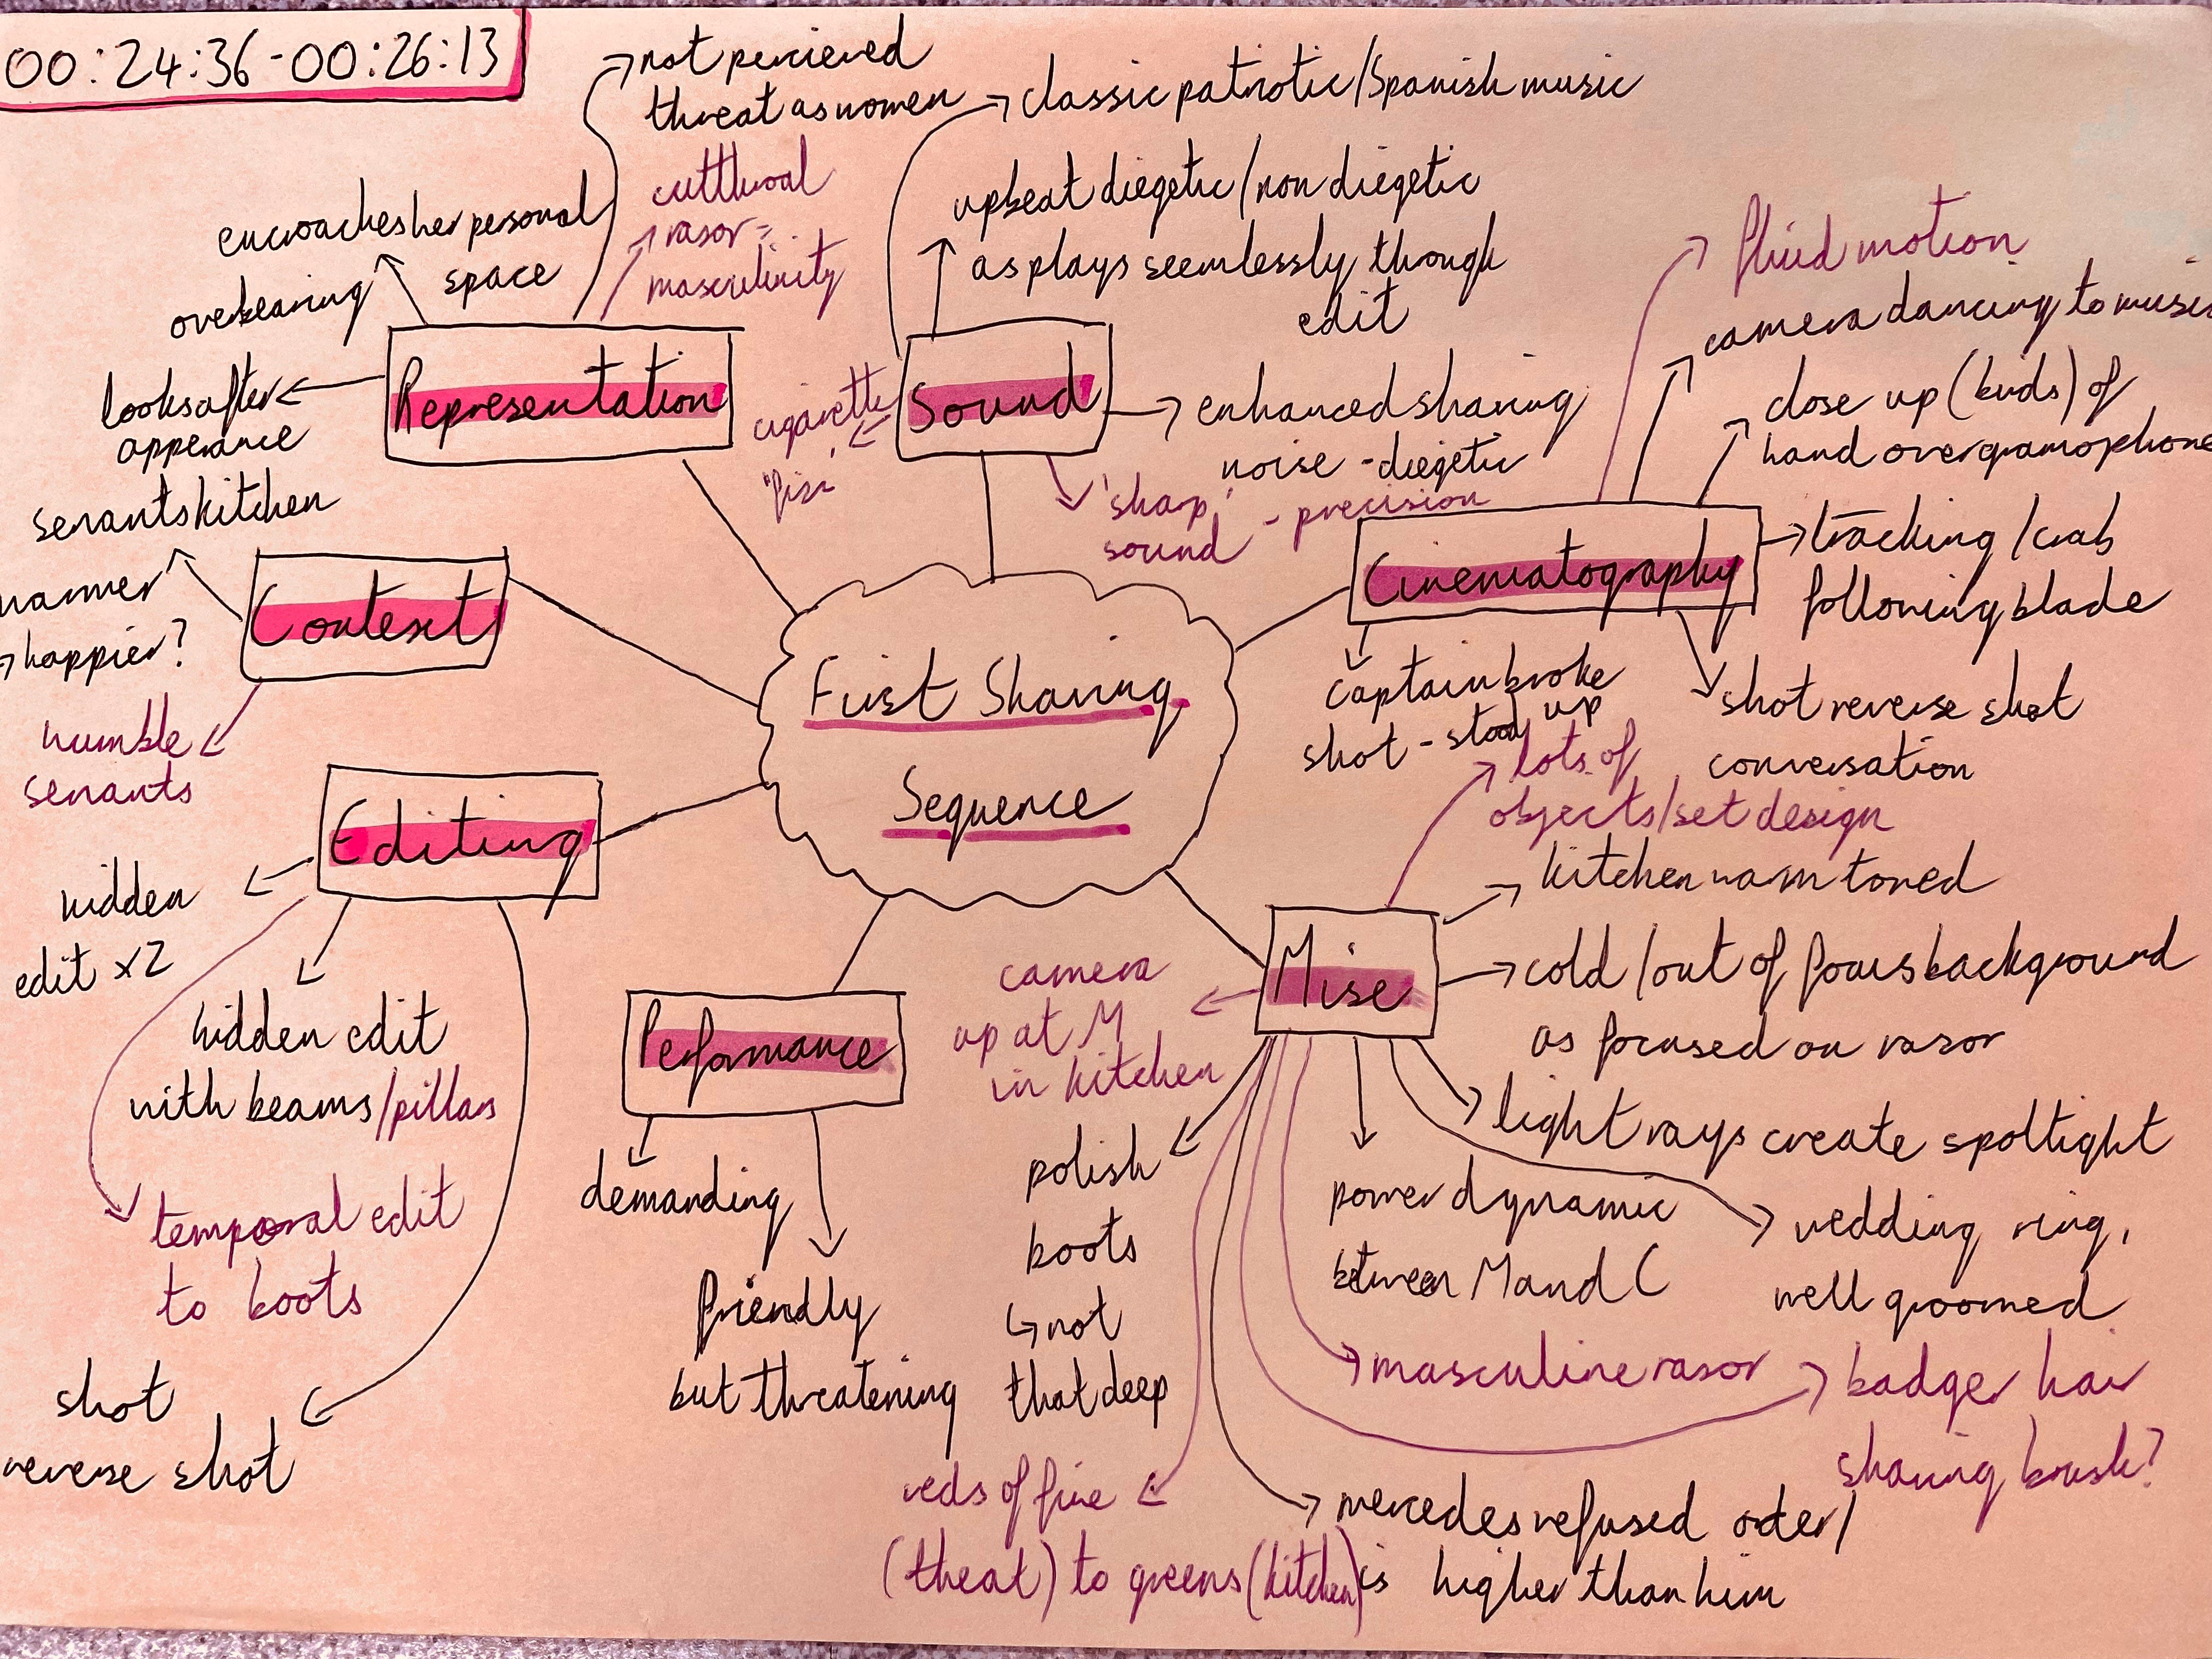 00:24:36-00:26:13
not percieved
threat as women
cutthroat
rasor =
masculinity
encroaches her personal
space
overbearing
looks after
apperance
Representation
classic patriotic/Spanish music
upbeat diegetic/non diegetic
as plays seemlessly through
edit
Sound
cigarette
enhanced shaving
noise - diegetic
'sharp' - precision
sound
fluid motion
camera dancing to music
close up (birds) of
hand over gramophone
Cinematography
tracking/crab
following blade
captain broke
shot - stood up
shot reverse shot
conversation
servants kitchen
warmer
→ happier?
Context
humble
servants
First Shaving
Sequence
Editing
hidden
edit x2
hidden edit
with beams/pillars
temporal edit
to boots
shot
reverse shot
Performance
demanding
friendly
but threatening
lots of
objects/set design
kitchen warm toned
Mise
cold/out of focus background
as focused on rasor
camera
up at M
in kitchen
light rays create spotlight
polish
boots
↳ not
that deep
power dynamic
between M and C
wedding ring,
well groomed
masculine rasor
badger hair
shaving brush?
reds of fire
(theat) to greens (kitchen)
mercedes refused order/
is higher than him